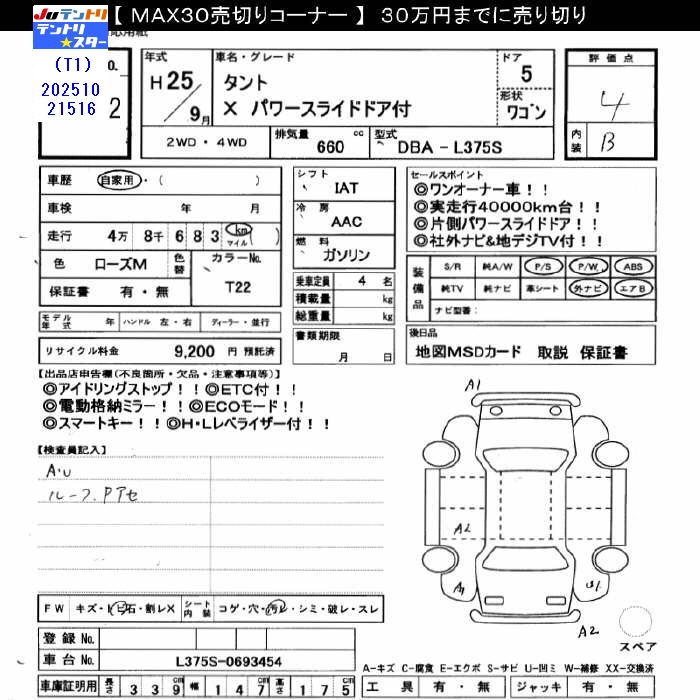 Juテントリ 【 MAX30売切りコーナー 】 30万円までに売り切り
テントリ★スター
(T1)
202510
21516
O.
2
年式
H25/9月
車名・グレード
タント
X パワースライドドア付
ドア
5
形状
ワゴン
評価点
4
内装
B
2WD・4WD
排気量
660 cc
型式
DBA - L375S
車歴 自家用・( )
車検 年 月
走行 4万 8千 6 8 3 km マイル ( )
色 ローズM 色替 カラーNo.
保証書 有・無 T22
モデル年式 年 ハンドル 左・右 ディーラー・並行
リサイクル料金 9,200 円 預託済
シフト
IAT
冷房
AAC
燃料
ガソリン
乗車定員 4 名
積載量 kg
総重量 kg
書類期限
月 日
セールスポイント
◎ワンオーナー車!!
◎実走行40000km台!!
◎片側パワースライドドア!!
◎社外ナビ&地デジTV付!!
装備品
S/R 純A/W P/S P/W ABS
純TV 純ナビ 革シート 外ナビ エアB
ナビ型番:
後日品
地図MSDカード 取説 保証書
【出品店申告欄(不良箇所・欠品・注意事項等)】
◎アイドリングストップ!!◎ETC付!!
◎電動格納ミラー!!◎ECOモード!!
◎スマートキー!!◎H・Lレベライザー付!!
【検査員記入】
A・U
ルーフ、Pアセ
A1
A2
A1
U1
A2
スペア
FW キズ・ヒ石・割レX シート内装 コゲ・穴・汚レ・シミ・破レ・スレ
登録 No.
車台 No. L375S-0693454
車庫証明用 長さ 3 3 9 cm 幅 1 4 7 cm 高さ 1 7 5 cm
A-キズ C-腐食 E-エクボ S-サビ U-凹ミ W-補修 XX-交換済
工具 有・無 ジャッキ 有・無